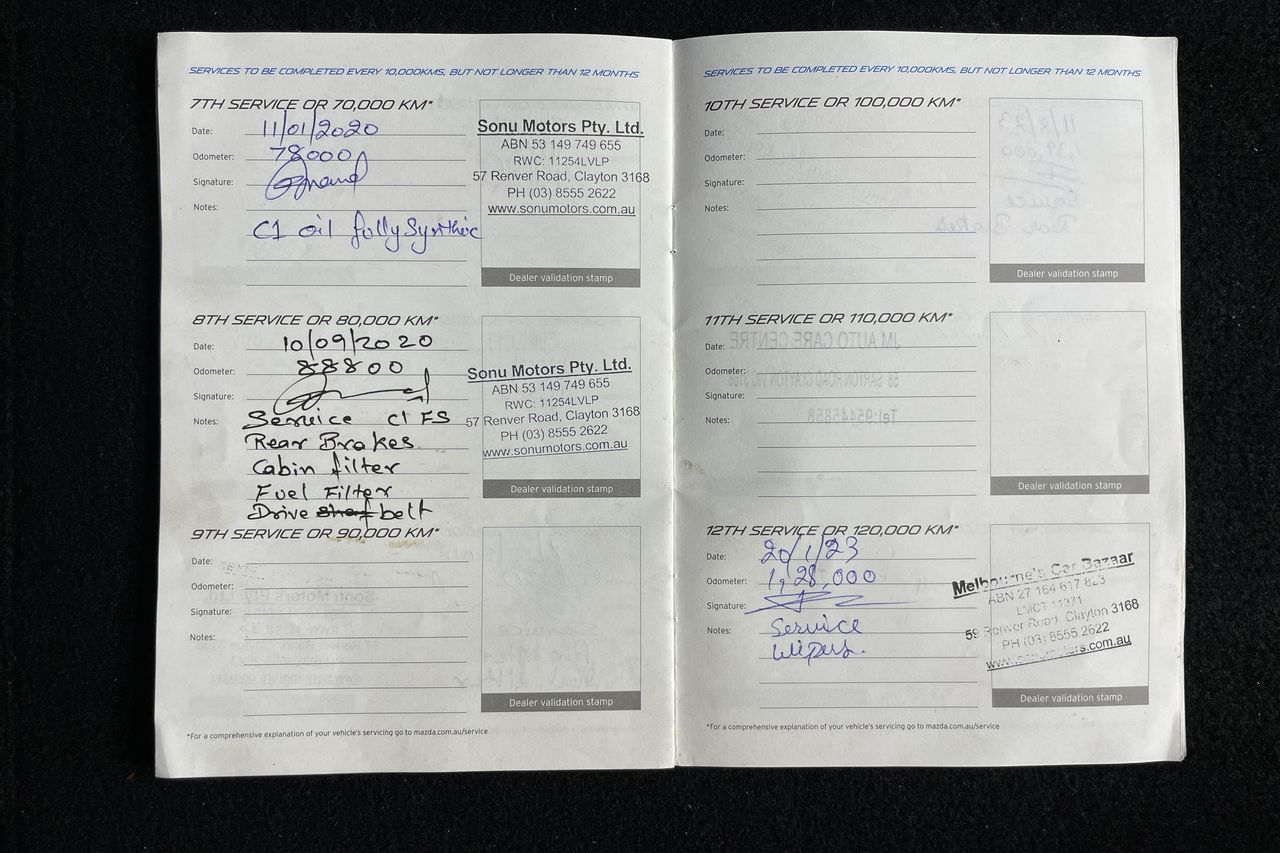 SERVICES TO BE COMPLETED EVERY 10,000KMS, BUT NOT LONGER THAN 12 MONTHS
7TH SERVICE OR 70,000 KM*
Date: 11/01/2020
Odometer: 78000
Signature:
Notes:
C1 oil fully Synthetic
Sonu Motors Pty. Ltd.
ABN 53 149 749 655
RWC: 11254LVLP
57 Renver Road, Clayton 3168
PH (03) 8555 2622
www.sonumotors.com.au
Dealer validation stamp
8TH SERVICE OR 80,000 KM*
Date: 10/09/2020
Odometer: 88800
Signature:
Notes: Service C1 FS
Rear Brakes
Cabin filter
Fuel Filter
Drive belt
Sonu Motors Pty. Ltd.
ABN 53 149 749 655
RWC: 11254LVLP
57 Renver Road, Clayton 3168
PH (03) 8555 2622
www.sonumotors.com.au
Dealer validation stamp
9TH SERVICE OR 90,000 KM*
Date:
Odometer:
Signature:
Notes:
Dealer validation stamp
*For a comprehensive explanation of your vehicle's servicing go to mazda.com.au/service
SERVICES TO BE COMPLETED EVERY 10,000KMS, BUT NOT LONGER THAN 12 MONTHS
10TH SERVICE OR 100,000 KM*
Date:
Odometer:
Signature:
Notes:
Dealer validation stamp
11TH SERVICE OR 110,000 KM*
Date:
Odometer:
Signature:
Notes:
Dealer validation stamp
12TH SERVICE OR 120,000 KM*
Date: 20/1/23
Odometer: 1,28,000
Signature:
Notes: Service
Wipers.
Melbourne's Car Bazaar
ABN 27 164 617 823
LMCT 11371
59 Renver Road, Clayton 3168
PH (03) 8555 2622
www.sonumotors.com.au
Dealer validation stamp
*For a comprehensive explanation of your vehicle's servicing go to mazda.com.au/service